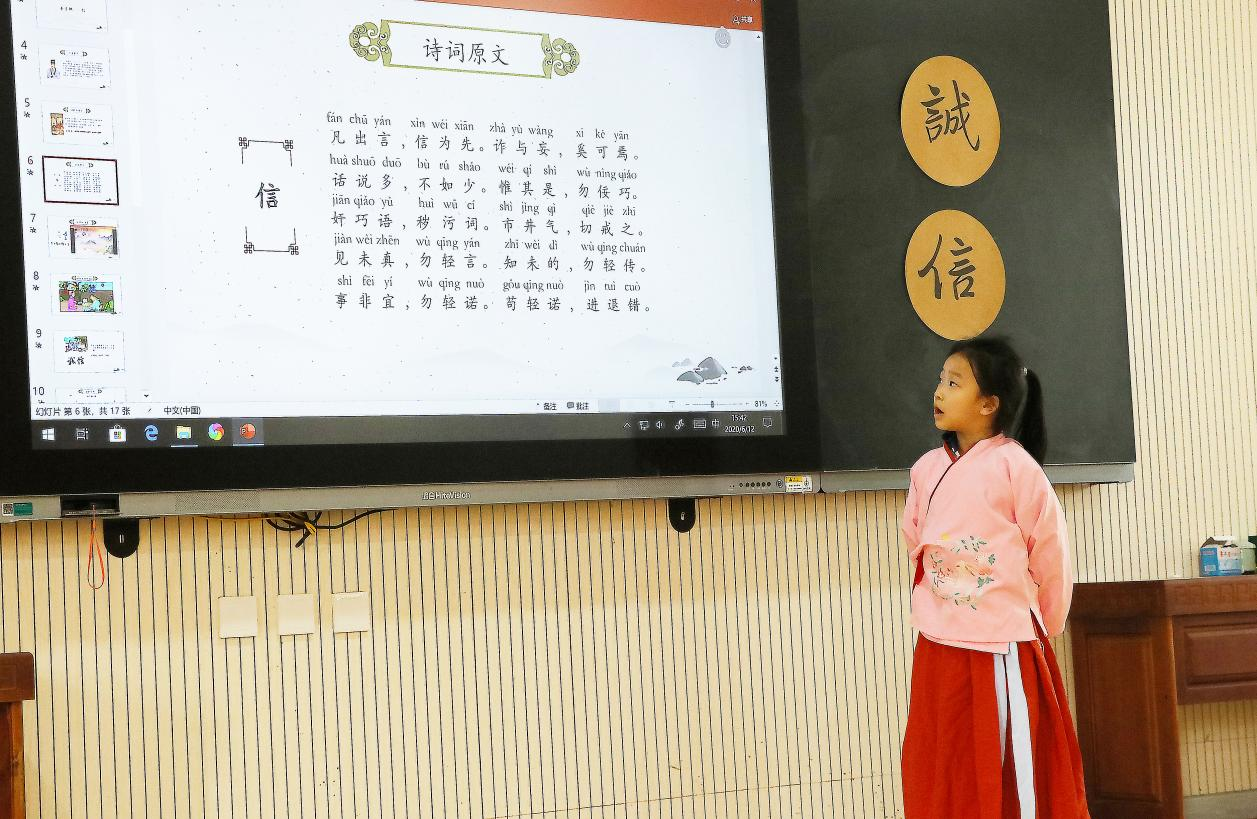 共享
诗词原文
信
fán chū yán xìn wéi xiān zhà yǔ wàng xī kě yān
凡出言，信为先。诈与妄，奚可焉。
huà shuō duō bù rú shǎo wéi qí shì wù nìng qiǎo
话说多，不如少。惟其是，勿佞巧。
jiān qiǎo yǔ huì wū cí shì jǐng qì qiè jiè zhī
奸巧语，秽污词。市井气，切戒之。
jiàn wèi zhēn wù qīng yán zhī wèi dì wù qīng chuán
见未真，勿轻言。知未的，勿轻传。
shì fēi yí wù qīng nuò gǒu qīng nuò jìn tuì cuò
事非宜，勿轻诺。苟轻诺，进退错。
4
5
6
7
8
9
诚信
10
幻灯片 第 6 张，共 17 张 中文(中国)
备注 批注 81%
中 15:42
2020/6/12
HiteVision
誠
信